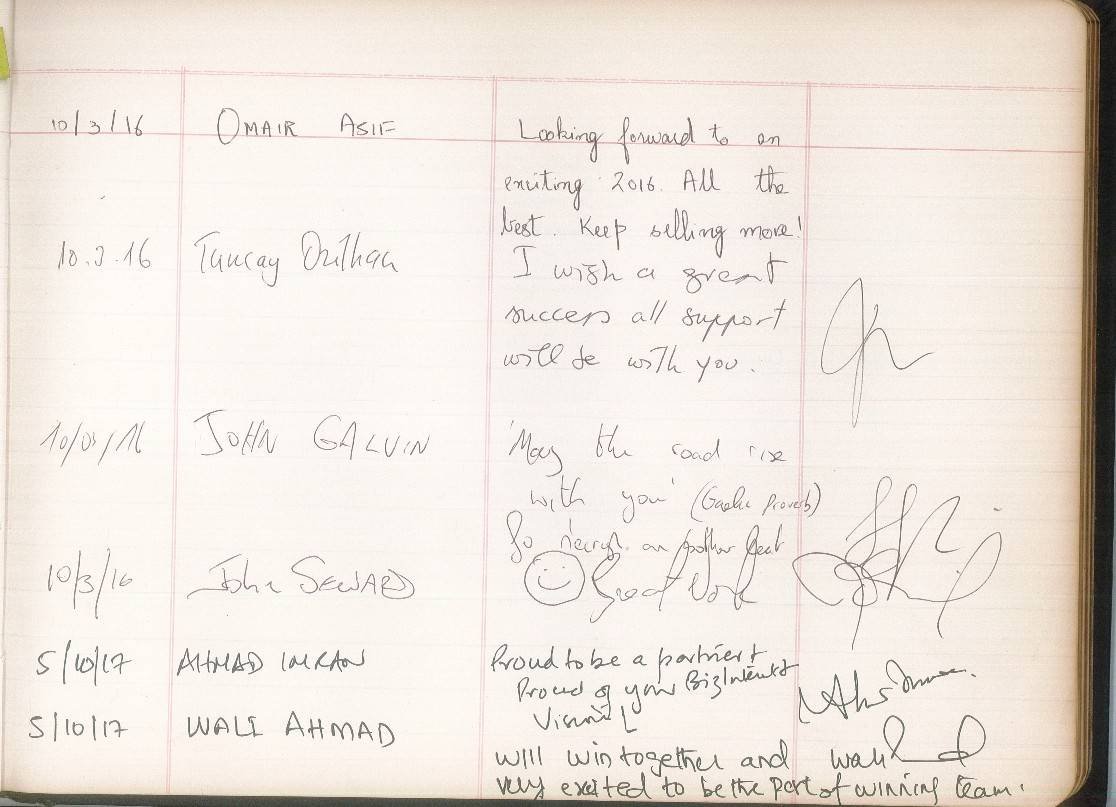 10/3/16 OMAIR ASIF Looking forward to an
exciting 2016. All the
best. Keep selling more!
10.3.16 Tuncay I wish a great
success all support
will be with you.
10/03/16 JOHN GALVIN 'May the road rise
with you' (Gaelic Proverb)
Go n'éirigh an bóthar leat
10/3/16 John SEWARD Great Work
5/10/17 AHMAD IMRAN Proud to be a partner &
Proud of your
5/10/17 WALI AHMAD
will win together and Wali
very excited to be the part of winning team.